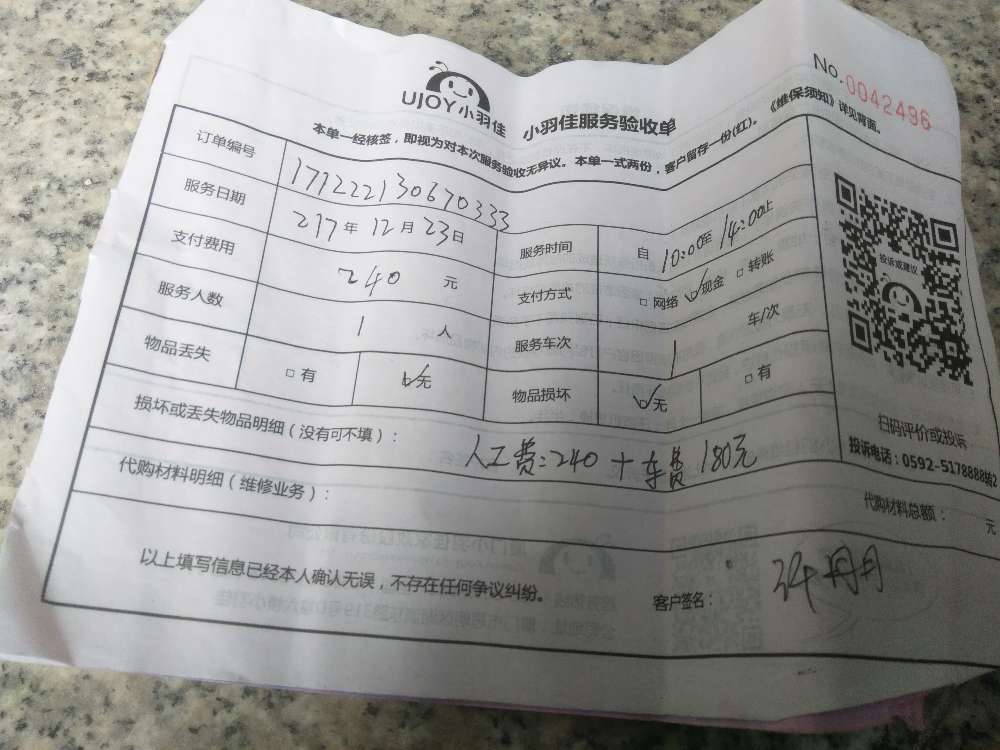 UJOY小羽佳
小羽佳服务验收单
No.0042496
本单一经核签，即视为对本次服务验收无异议。本单一式两份，客户留存一份(红)。《维保须知》详见背面。
订单编号 171222130670333
服务日期 217年12月23日 服务时间 自10:00至14:00止
支付费用 240元 支付方式 □网络 ☑现金 □转账
服务人数 1人 服务车次 1 车/次
物品丢失 □有 ☑无 物品损坏 ☑无 □有
损坏或丢失物品明细（没有可不填）：
人工费:240+车费180元
代购材料明细（维修业务）：
代购材料总额： 元
以上填写信息已经本人确认无误，不存在任何争议纠纷。
客户签名：
投诉或建议
扫码评价或投诉
投诉电话：0592-5178888转2